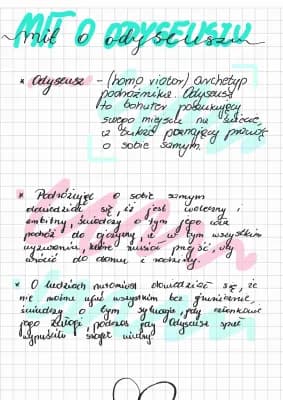 MIT O ODYSEUSZU
mit o odyseuszu
* Odyseusz - (homo viator) archetyp
podróżnika. Odyseusz
to bohater poszukujący
swego miejsca na świecie,
a także poznający prawdę
o sobie samym.
* Podróżując o sobie samym
dowiedział się, iż jest waleczny i
ambitny, świadczy o tym jego
podróż do ojczyzny, w tym wszystkim
wyzwaniu, które musiał przejść, aby
wrócić do domu i rodziny.
* O ludziach natomiast dowiedział się, że
nie można ufać wszystkim bez
świadczy o tym sytuacja, gdy członkowie
jego załogi, podczas gdy Odyseusz spał
wypuścili wiatry